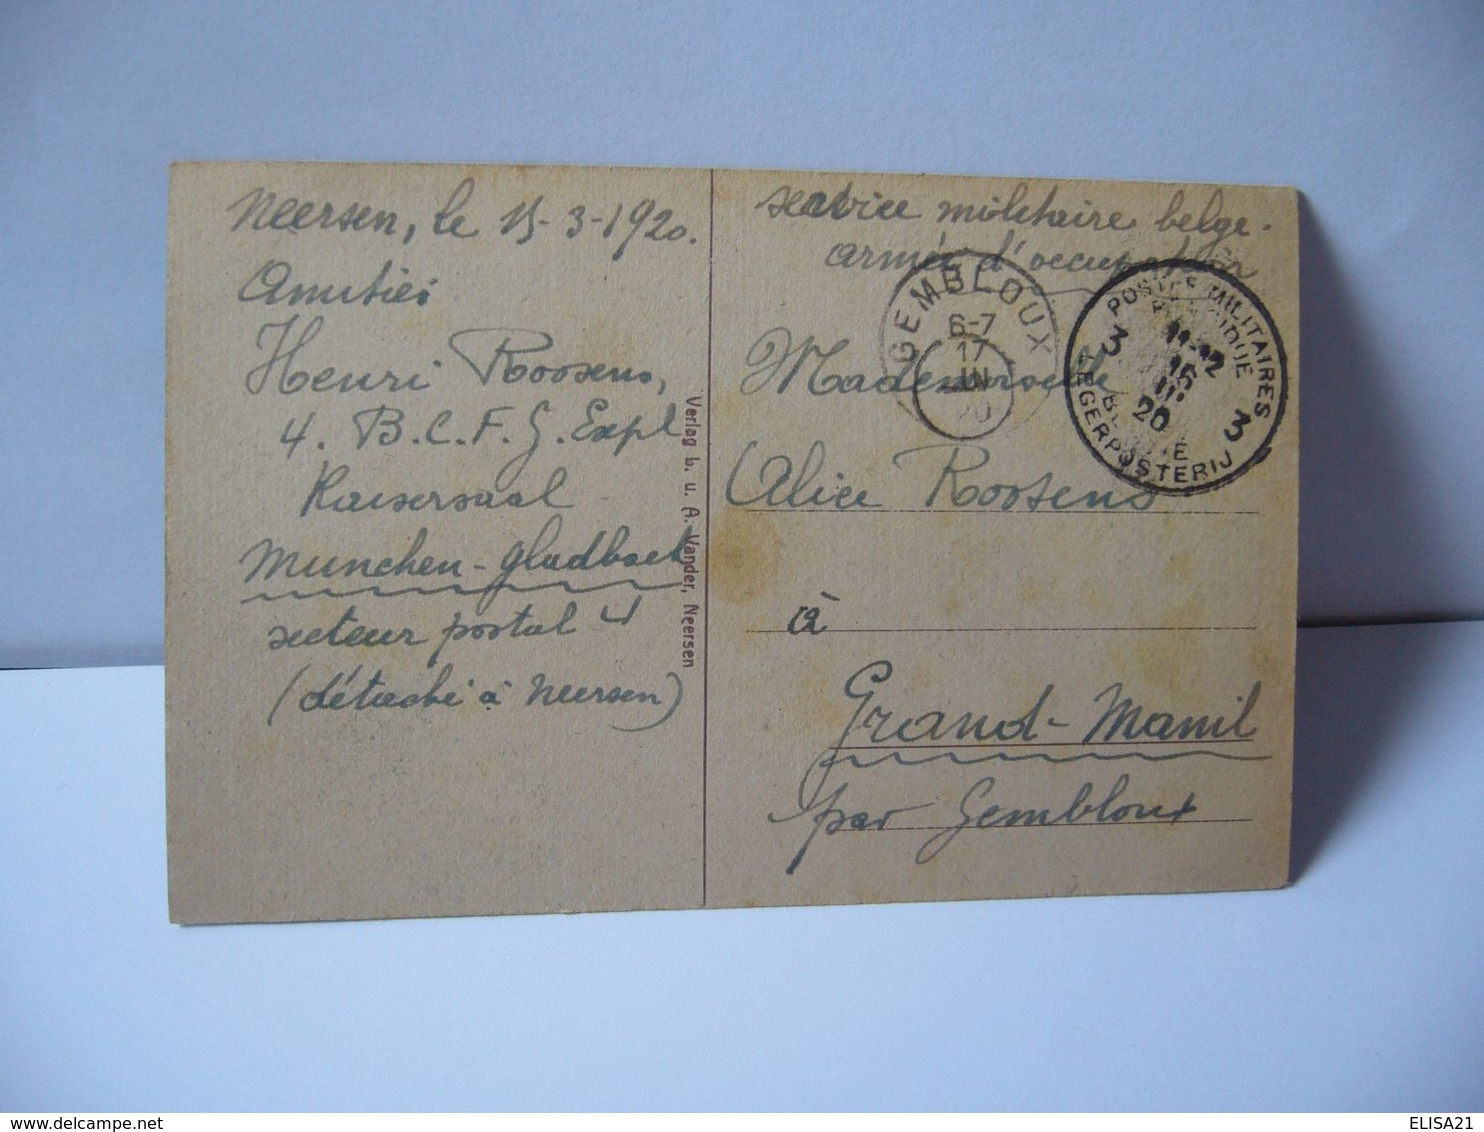 Neersen, le 15-3-1920.
Amitiés
Henri Roosens,
4. B.C.F. G. Expl
Kaisersaal
Munchen-gladbach
secteur postal 4
(détaché à Neersen)
Verlag b. u. A. Vander, Neersen
service militaire belge.
armée d'occupation
GEMBLOUX
6-7
17
20
POSTES MILITAIRES
BELGIQUE
3 11-12 3
15
III
20
BELGIE
LEGERPOSTERIJ
Mademoiselle
Alice Roosens
à
Grand-Manil
par Gembloux
ELISA21